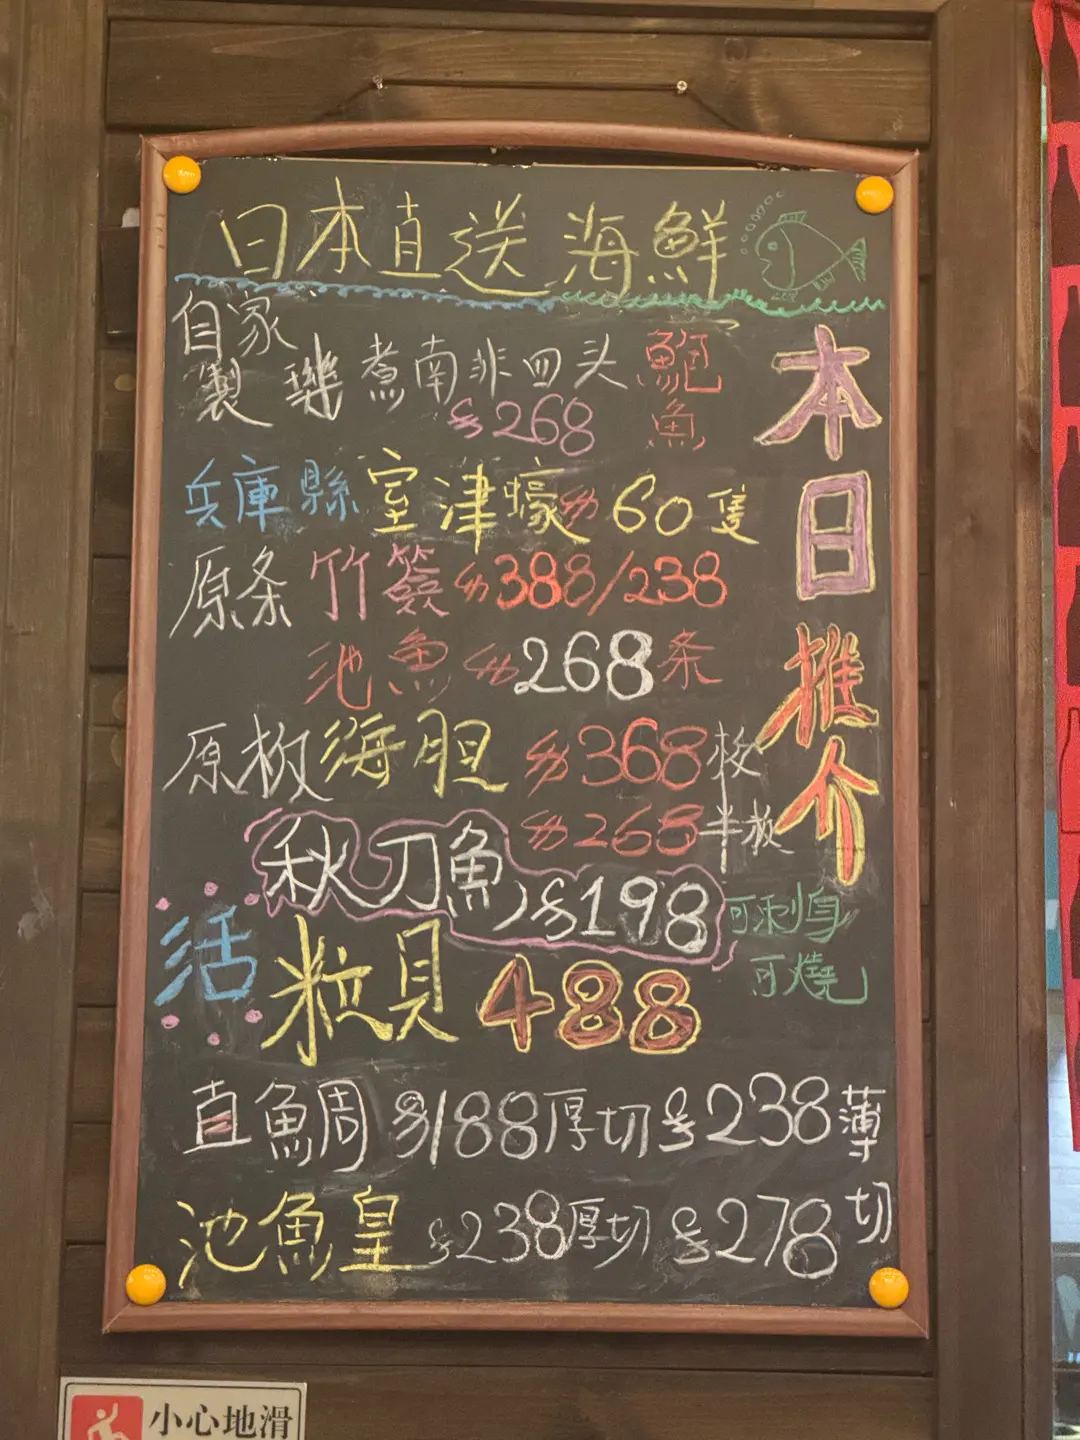 日本直送海鮮
本日推介
自家
製 煮南非四头鮑魚
$268
兵庫縣室津蠔$60隻
原条竹籤$388/238
池魚$268条
原板海胆$368板
$268半板
秋刀魚$198 可刺身
可燒
活粒貝488
直鯛$188厚切$238薄切
池魚皇$238厚切$278
小心地滑